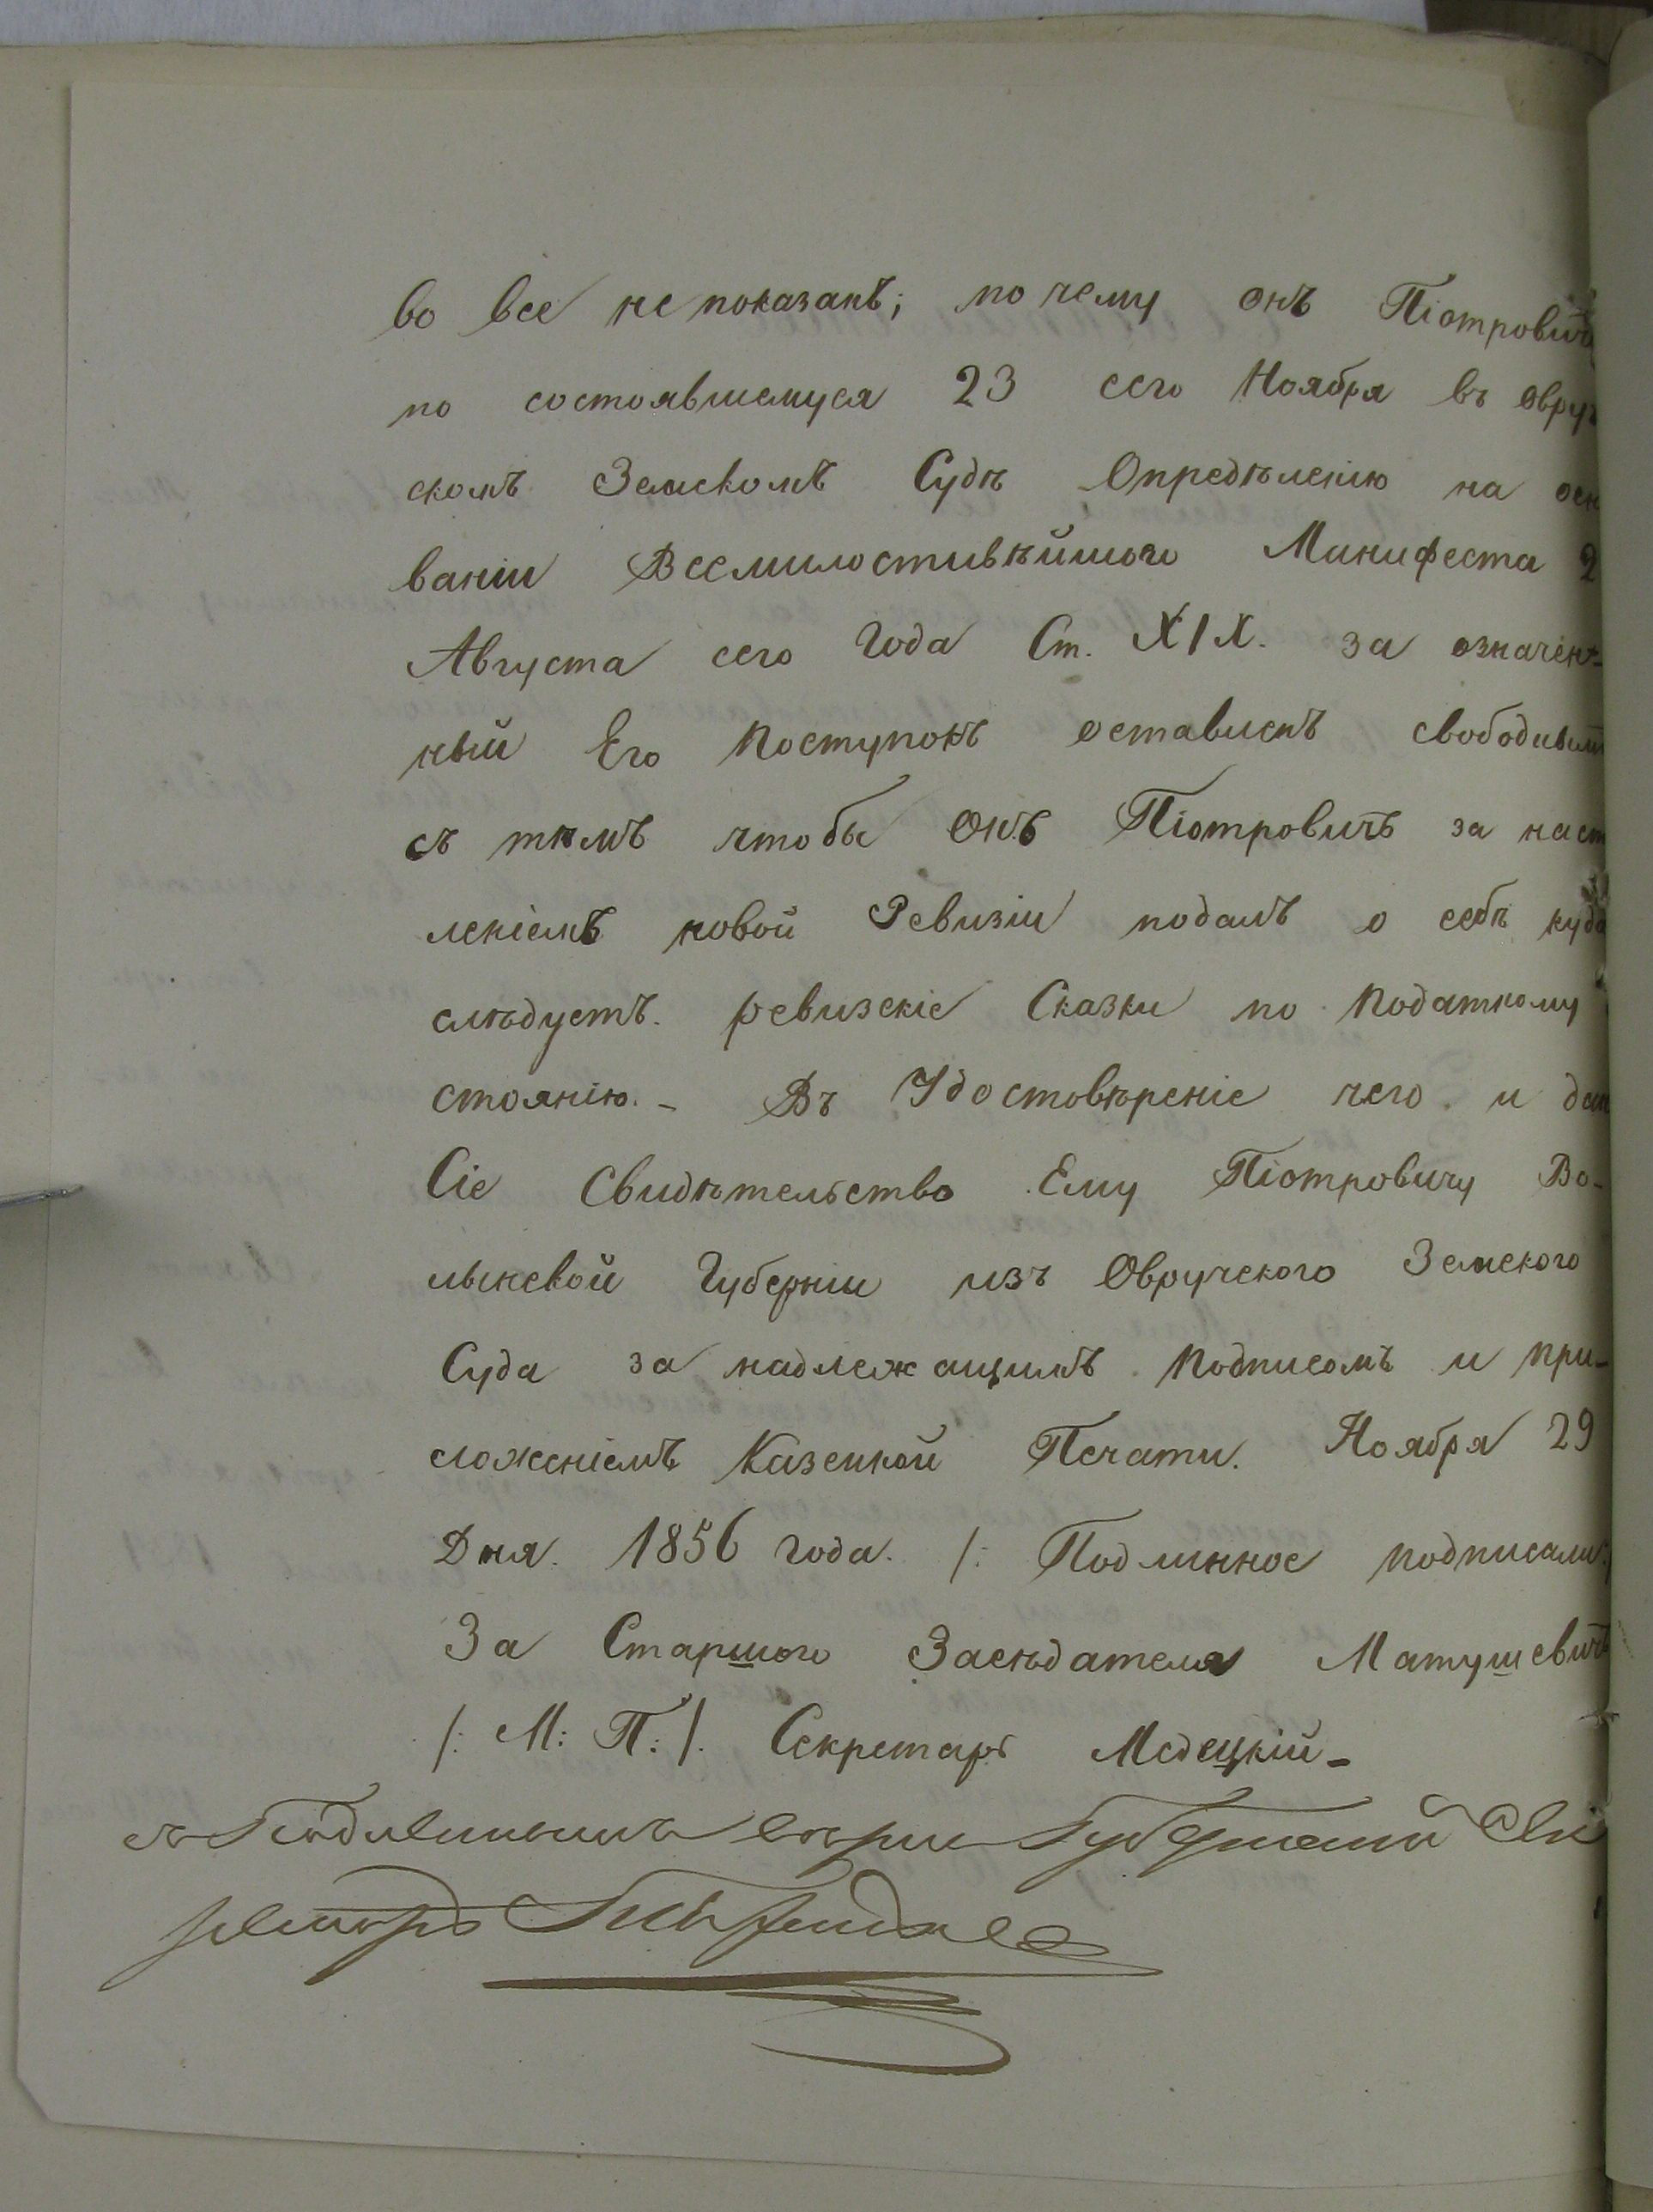 во все не показанъ; по чему онъ Піотровичъ
по состоявшемуся 23 сего Ноября въ Овруч
скомъ Земскомъ Судѣ Опредѣленію на осн
ваніи Всемилостивѣйшого Манифеста 2
Августа сего Года Ст. XIX. за означен-
ный Его Поступокъ оставленъ свободнымъ
съ тѣмъ что бы онъ Піотровичъ за наст
леніемъ новой Ревизіи подалъ о себѣ куда
слѣдуетъ. ревизскіе Сказки по Податному
стоянію. - Въ Удостовѣреніе чего и дан
Сіе Свидѣтельство Ему Піотровичу Во-
лынской Губерніи изъ Овручского Земского
Суда за надлежащимъ Подписомъ и при-
ложеніемъ Казенной Печати. Ноября 29
Дня. 1856 года. /: Подлинное подписали:
За Старшого Засѣдателя Матушевичъ
/: М: П: /. Секретарь Медецкій -
съ Подлиннымъ вѣрно Губернскій Сек
ретарь